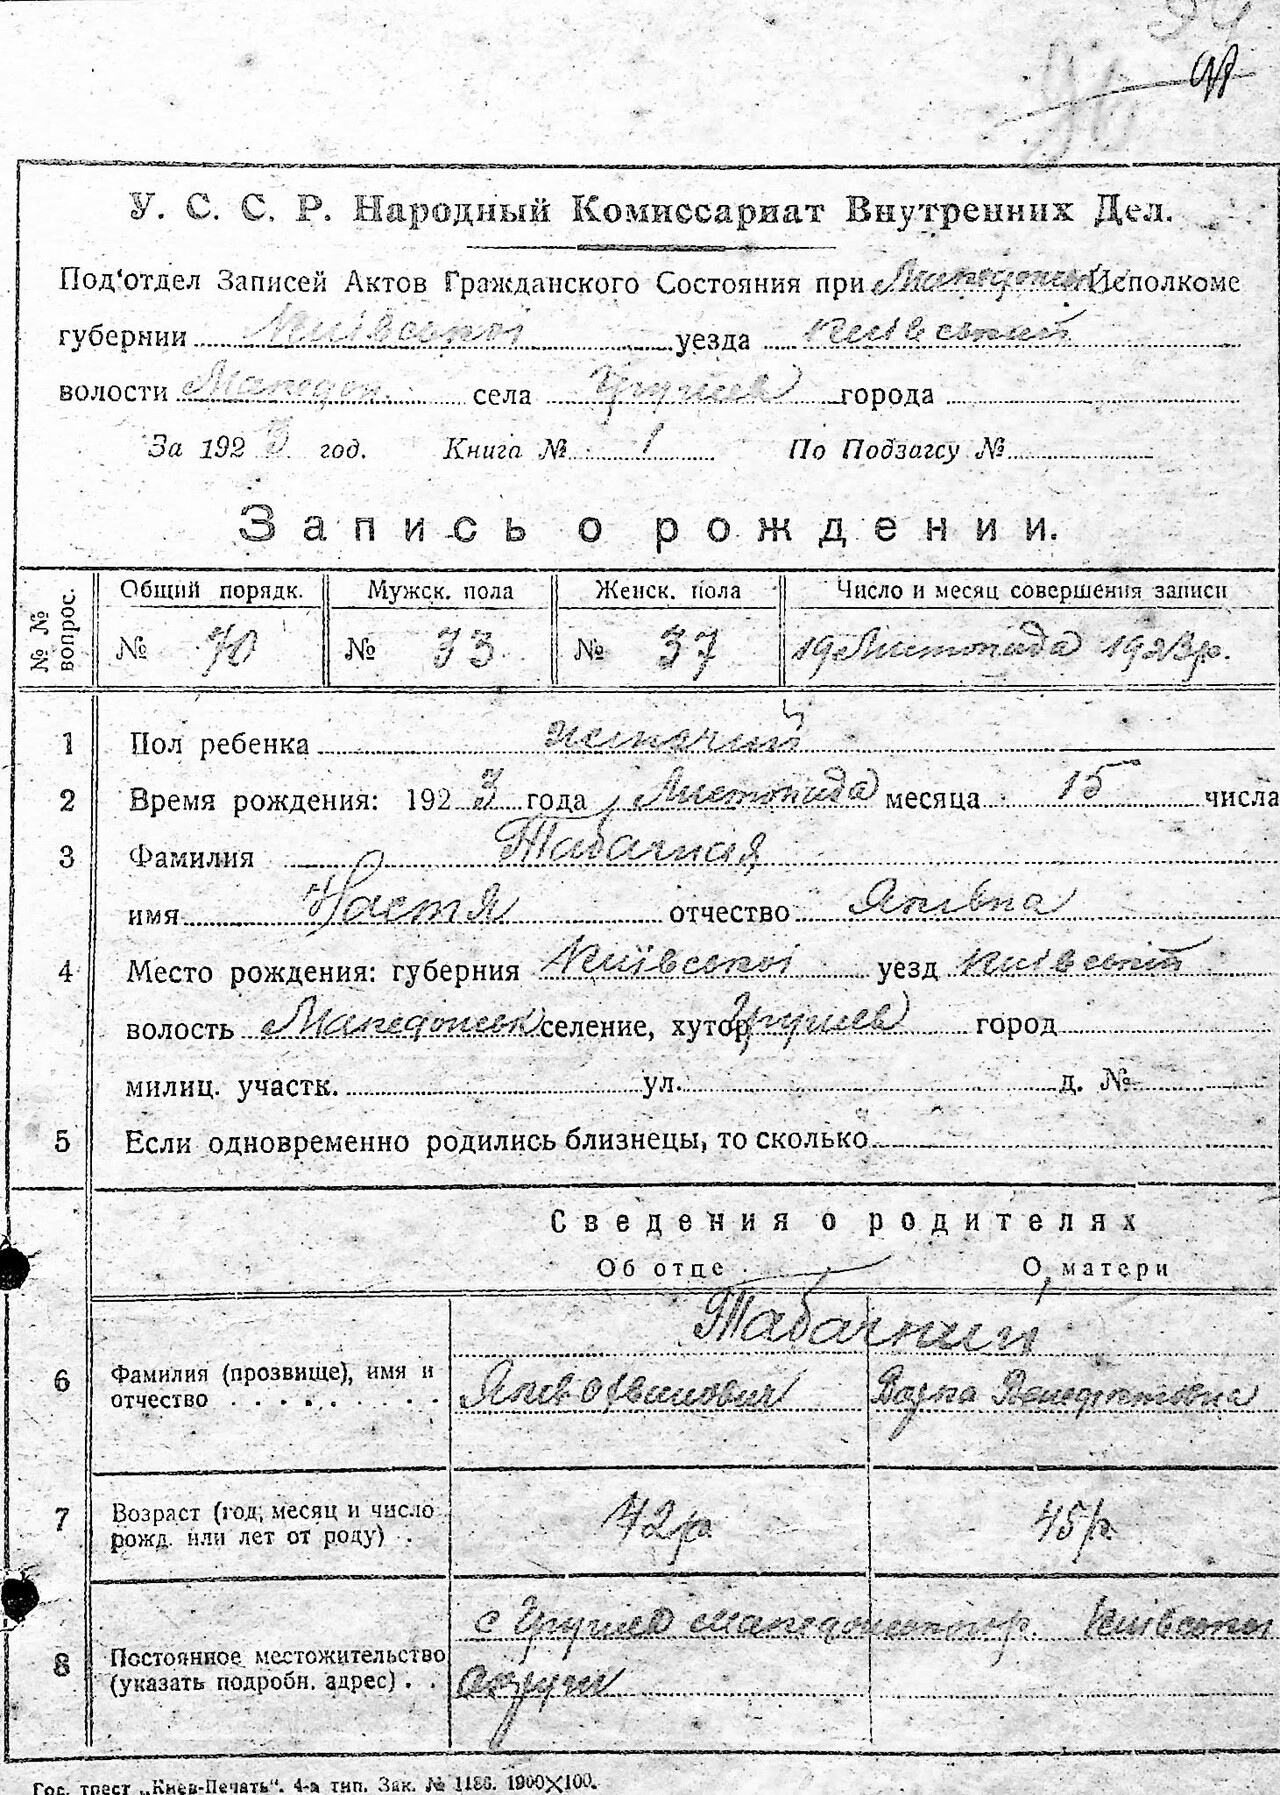 98
У. С. С. Р. Народный Комиссариат Внутренних Дел.
Под‘отдел Записей Актов Гражданского Состояния при Исполкоме
губернии Київської уезда Київський
волости Македон. села города
За 1923 год. Книга № 1 По Подзагсу №
Запись о рождении.
№ № вопрос. Общий порядк. Мужск. пола Женск. пола Число и месяц совершения записи
№ 70 № 33 № 37 19 Листопада 1923 р.
1 Пол ребенка жіночий
2 Время рождения: 1923 года Листопада месяца 15 числа
3 Фамилия Табачная
имя Настя отчество Яківна
4 Место рождения: губерния Київської уезд
волость селение, хутор город
милиц. участк. ул. д. №
5 Если одновременно родились близнецы, то сколько
Сведения о родителях
Об отце О матери
Табачний
6 Фамилия (прозвище), имя и
отчество . . . . . . . . . Яків
7 Возраст (год, месяц и число
рожд. или лет от роду) . 42 р. 45 р.
с Київської
8 Постоянное местожительство
(указать подробн. адрес) . . округи
Гос. трест „Киев-Печать“. 4-а тип. Зак. № 1186. 1900×100.